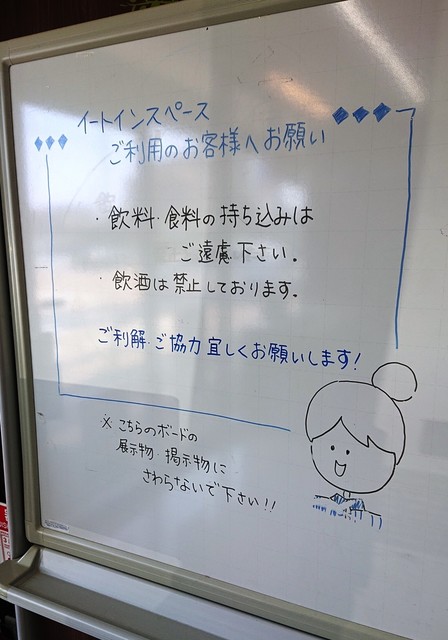 イートインスペース
ご利用のお客様へお願い
・飲料・食料の持ち込みは
ご遠慮下さい。
・飲酒は禁止しております。
ご利解・ご協力宜しくお願いします!
※こちらのボードの
展示物・掲示物に
さわらないで下さい!!